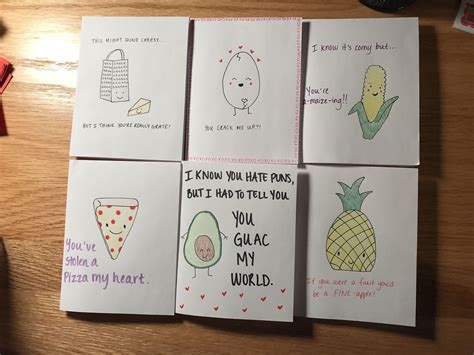 THIS MIGHT SOUND CHEESY...
BUT I THINK YOU'RE REALLY GRATE!
YOU CRACK ME UP!!
I know it's corny but...
You're
a-maize-ing!!
You've
stolen a
Pizza my heart.
I KNOW YOU HATE PUNS,
BUT I HAD TO TELL YOU
YOU
GUAC
MY
WORLD.
If you were a fruit you'd
be a FINE-apple!